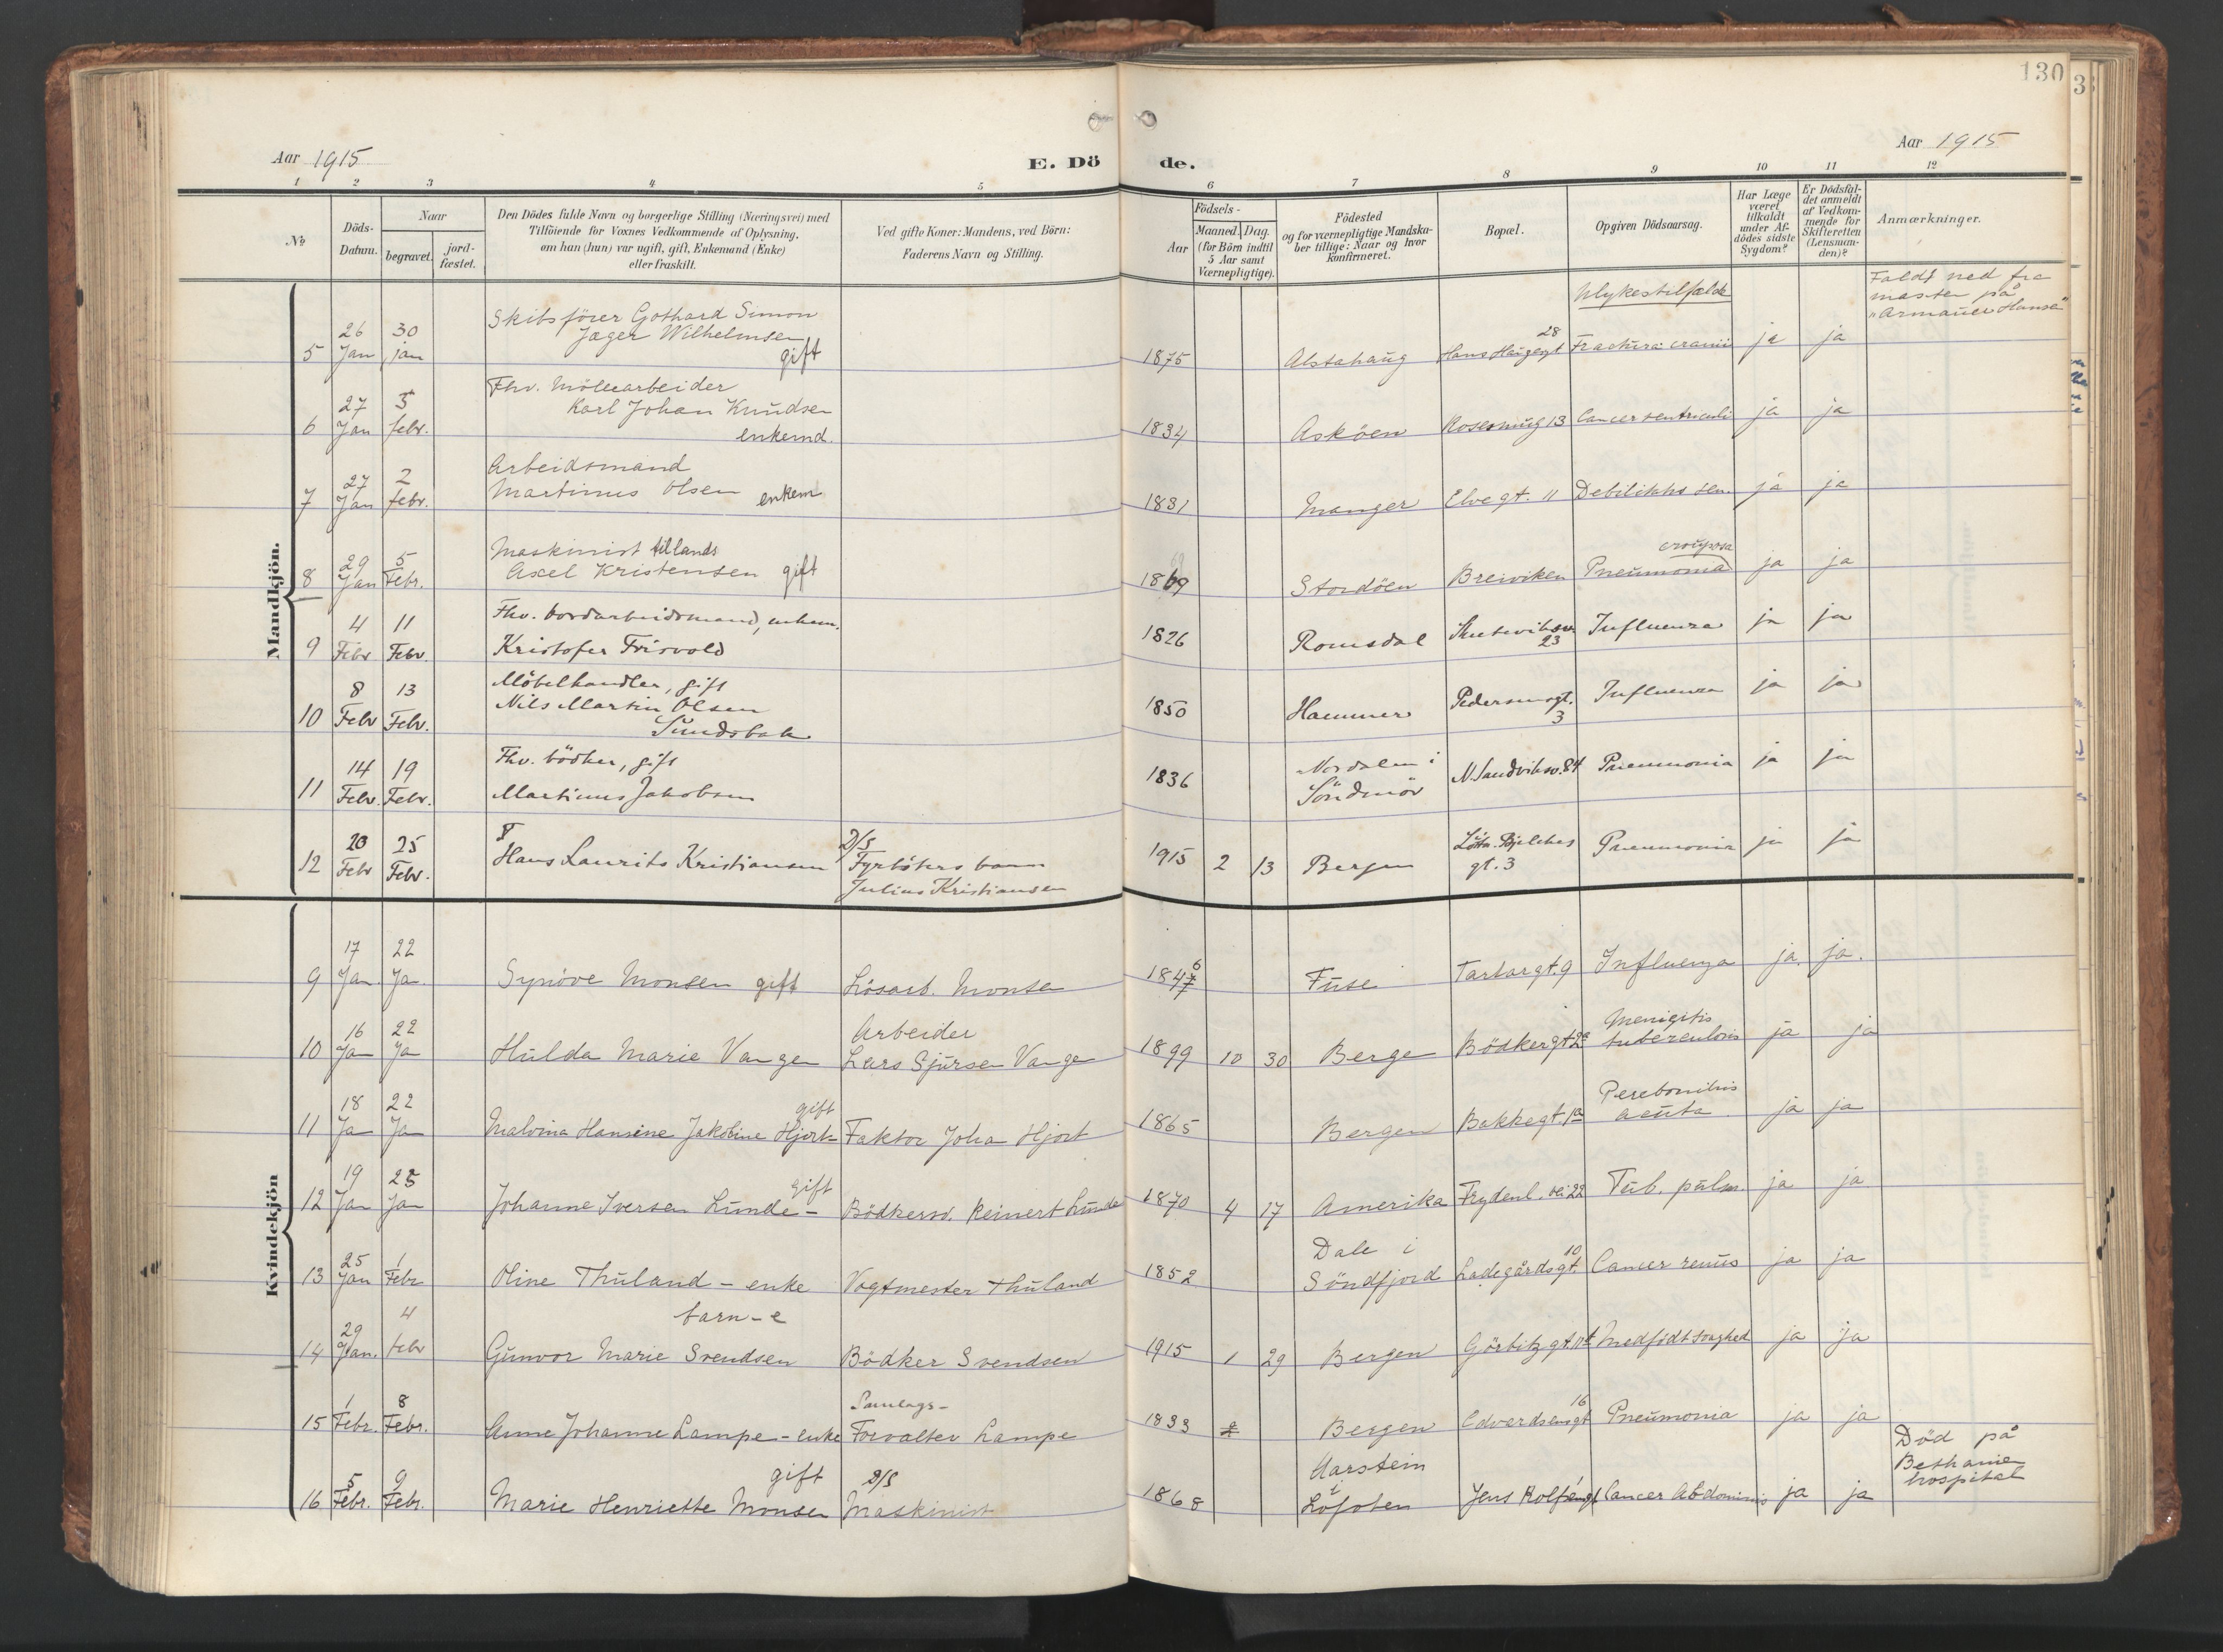 130
Aar 1915
E. Dö de.
Aar 1915
1 2 3 4 5 6 7 8 9 10 11 12
No
Döds-
Datum.
Naar
begravet.
jord-
fæstet.
Den Dödes fulde Navn og borgerlige Stilling (Næringsvei) med
Tilföiende for Voxnes Vedkommende af Oplysning,
om han (hun) var ugift, gift, Enkemand (Enke)
eller fraskilt.
Ved gifte Koner: Mandens, ved Börn:
Faderens Navn og Stilling.
Födsels-
Aar
Maaned. Dag.
(for Börn indtil
5 Aar samt
Værnepligtige).
Födested
og for værnepligtige Mandska-
ber tillige: Naar og hvor
konfirmeret.
Bopæl.
Opgiven Dödsaarsag.
Har Læge
været
tilkaldt
under Af-
dödes sidste
Sygdom?
Er Dödsfal-
det anmeldt
af Vedkom-
mende for
Skifteretten
(Lensman-
den)?
Anmærkninger.
Mandkjön.
5 26 Jan 30 jan
Skibsförer Gothard Simon
Jæger Wilhelmsen
gift
1875 Alstahaug Hans Haugesgt 28
Ulykestilfælde
Fractura cranii ja ja
Faldt ned fra
masten på
"Armauer Hansa"
6 27 Jan 5 febr.
Fhv. Möllearbeider
Karl Johan Knudsen
enkemd.
1834 Asköen Rosesmug 13 Cancer ventriculi ja ja
7 27 Jan 2 febr.
Arbeidsmand
Martinus Olsen enkem
1831 Manger Elvegt. 11 Debilitas sen. ja ja
8 29 Jan 5 Febr.
Maskinist tillands
Axel Kristensen gift
1869 Stordöen Breiviken Pneumonia crouposa ja ja
9 4 Febr 11 Febr.
Fhv. bordarbeidsmand, enkem.
Kristofer Frisvold
1826 Romsdal 23 Influenza ja ja
10 8 Febr 13 Febr.
Möbelhandler, gift
Nils Martin Olsen
Sundsbak
1850 Hammer 3 Influenza ja ja
11 14 Febr. 19 Febr.
Fhv. bödker, gift
Martinus Jakobsen
1836 Nordalen i
Söndmör N. Sandviksv. 84 Pneumonia ja ja
12 20 Febr 25 Febr.
Hans Laurits Kristiansen
D/S
Fyrböters barn
Julius Kristiansen
1915 2 13 Bergen
gt. 3 Pneumonia ja ja
Kvindekjön
9 17 Jan. 22 Ja.
Synöve Monsen gift Lösarb. Monsen
1847 6 Fuse Tartargt. 9 Influenza ja. ja.
10 16 Jan 22 Ja
Hulda Marie Vangen
Arbeider
Lars Sjursen Vangen
1899 10 30 Bergen Bödkergt 2a
Menigitis
tuberculosis ja ja
11 18 Ja 22 Ja
gift
Malvina Hansine Jakobine Hjort- Faktor Johan Hjort
1865 Bergen Bakkegt. 1a
Peretonitis
acuta ja ja
12 19 Jan 25 Jan
gift
Johanne Iversen Lunde- Bödkersv. Reinert Lunde
1870 4 17 Amerika Frydenl. vei 22 Tub. pulm. ja ja
13 25 Jan 1 Febr
Oline Thuland - enke Vogtmester Thuland
1852 Dale i
Söndfjord Ladegårdsgt. 10 Cancer renus ja ja
14 29 Jan. 4 febr
barn-e
Gunvor Marie Svendsen Bödker Svendsen
1915 1 29 Bergen Görbitz gt. Medfödt svaghed ja ja
15 1 Febr. 8 Febr.
Anne Johanne Lampe - enke
Samlags-
Forvalter Lampe
1833 Bergen Edvardsensgt 16 Pneumonia ja ja
16 5 Febr. 9 Febr.
gift
Marie Henriette Monsen
D/S
Maskinist
1868 Harstein
i
Lofoten Jens Rolfsengt Cancer Abdominis ja ja
Död på
Bethanien
hospital